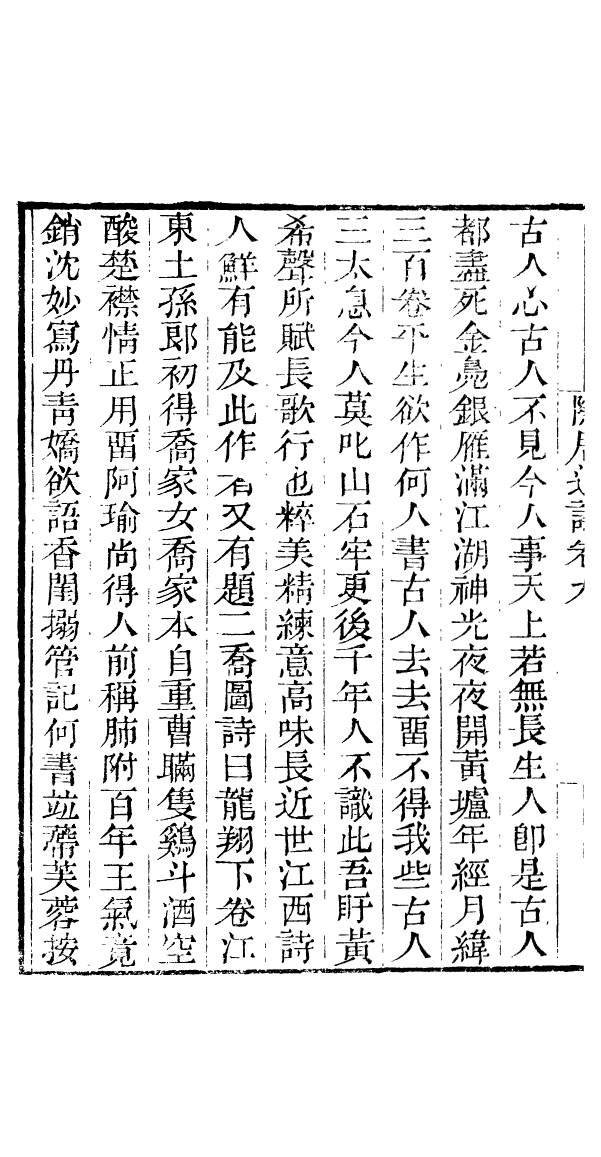 古人心古人不見今人事天上若無長生人卽是古人
都盡死金鳧銀雁滿江湖神光夜夜開黃壚年經月緯
三百卷平生欲作何人書古人去去畱不得我些古人
三太息今人莫叱山石牢更後千年人不識此吾盱黃
希聲所賦長歌行也粹美精練意高味長近世江西詩
人鮮有能及此作者又有題二喬圖詩曰龍翔下卷江
東土孫郎初得喬家女喬家本自重曹瞞隻鷄斗酒空
酸楚襟情正用畱阿瑜尚得人前稱肺附百年王氣竟
銷沈妙寫丹靑嬌欲語香閨搦管記何書竝蔕芙蓉按